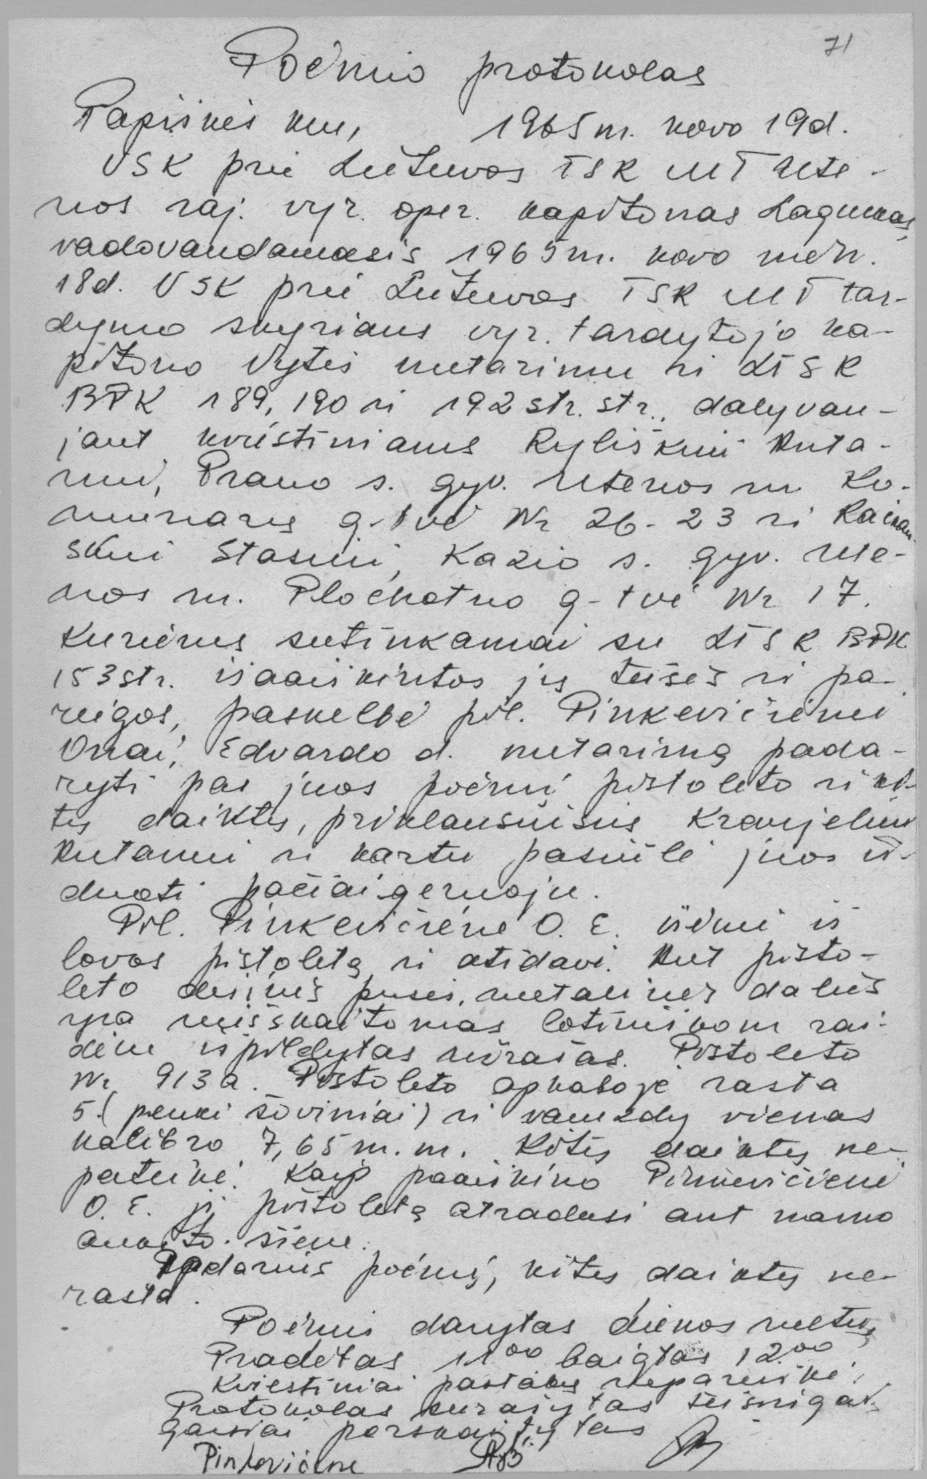 71
Poėmio protokolas
Papiškės km, 1965 m. kovo 19 d.
VSK prie Lietuvos TSR MT Ute-
nos raj. vyr. oper. kapitonas
vadovaudamasis 1965 m. kovo mėn.
18 d. VSK prie Lietuvos TSR MT tar-
dymo skyriaus vyr. tardytojo ka-
pitono Vytės nutarimu ir LTSR
BPK 189, 190 ir 192 str. str., dalyvau-
jant kviestiniams Ryliškiui Anta-
nui, Prano s. gyv. Utenos m. Ko-
munarų g-tvė Nr 26-23 ir
Stasiui, Kazio s. gyv. Ute-
nos m. Plechotno g-tvė Nr 17.
Kuriems sutinkamai su LTSR BPK
153 str. išaiškintos jų teisės ir pa-
reigos, paskelbė pil. Pinkevičienei
Onai, Edvardo d. nutarimą pada-
ryti pas juos poėmį pistoleto ir ki-
tų daiktų, priklausiusių Kraujeliui
Antanui ir kartu pasiūlė juos iš-
duoti pačiai geruoju.
Pil. Pinkevičienė O. E. išėmė iš
lovos pistoletą ir atidavė. Ant pisto-
leto dešinės pusės, metalinės dalies
yra neišskaitomas lotiniškom rai-
dėm išpildytas užrašas. Pistoleto
Nr 913a. Pistoleto apkaboje rasta
5 (penki šoviniai) ir vamzdy vienas
kalibro 7,65 m.m. Kitų daiktų ne-
pateikė. Kaip paaiškino Pinkevičienė
O. E. jį pistoletą atradusi ant namo
aukšto šiene.
Padarius poėmį, kitų daiktų ne-
rasta.
Poėmis darytas dienos metu,
Pradėtas 11 00 baigtas 12 00
Kviestiniai pastabų nepareiškė,
Protokolas surašytas teisingai,
garsiai perskaitytas
Pinkevičienė